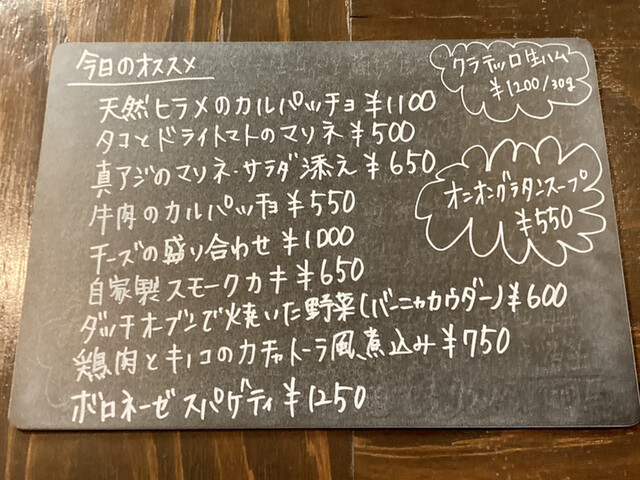 今日のオススメ
天然ヒラメのカルパッチョ ¥1100
タコとドライトマトのマリネ ¥500
真アジのマリネ・サラダ添え ¥650
牛肉のカルパッチョ ¥550
チーズの盛り合わせ ¥1000
自家製スモークカキ ¥650
ダッチオーブンで焼いた野菜(バーニャカウダー) ¥600
鶏肉とキノコのカチャトーラ風煮込み ¥750
ボロネーゼ スパゲティ ¥1250
クラテッロ生ハム
¥1200/30g
オニオングラタンスープ
¥550